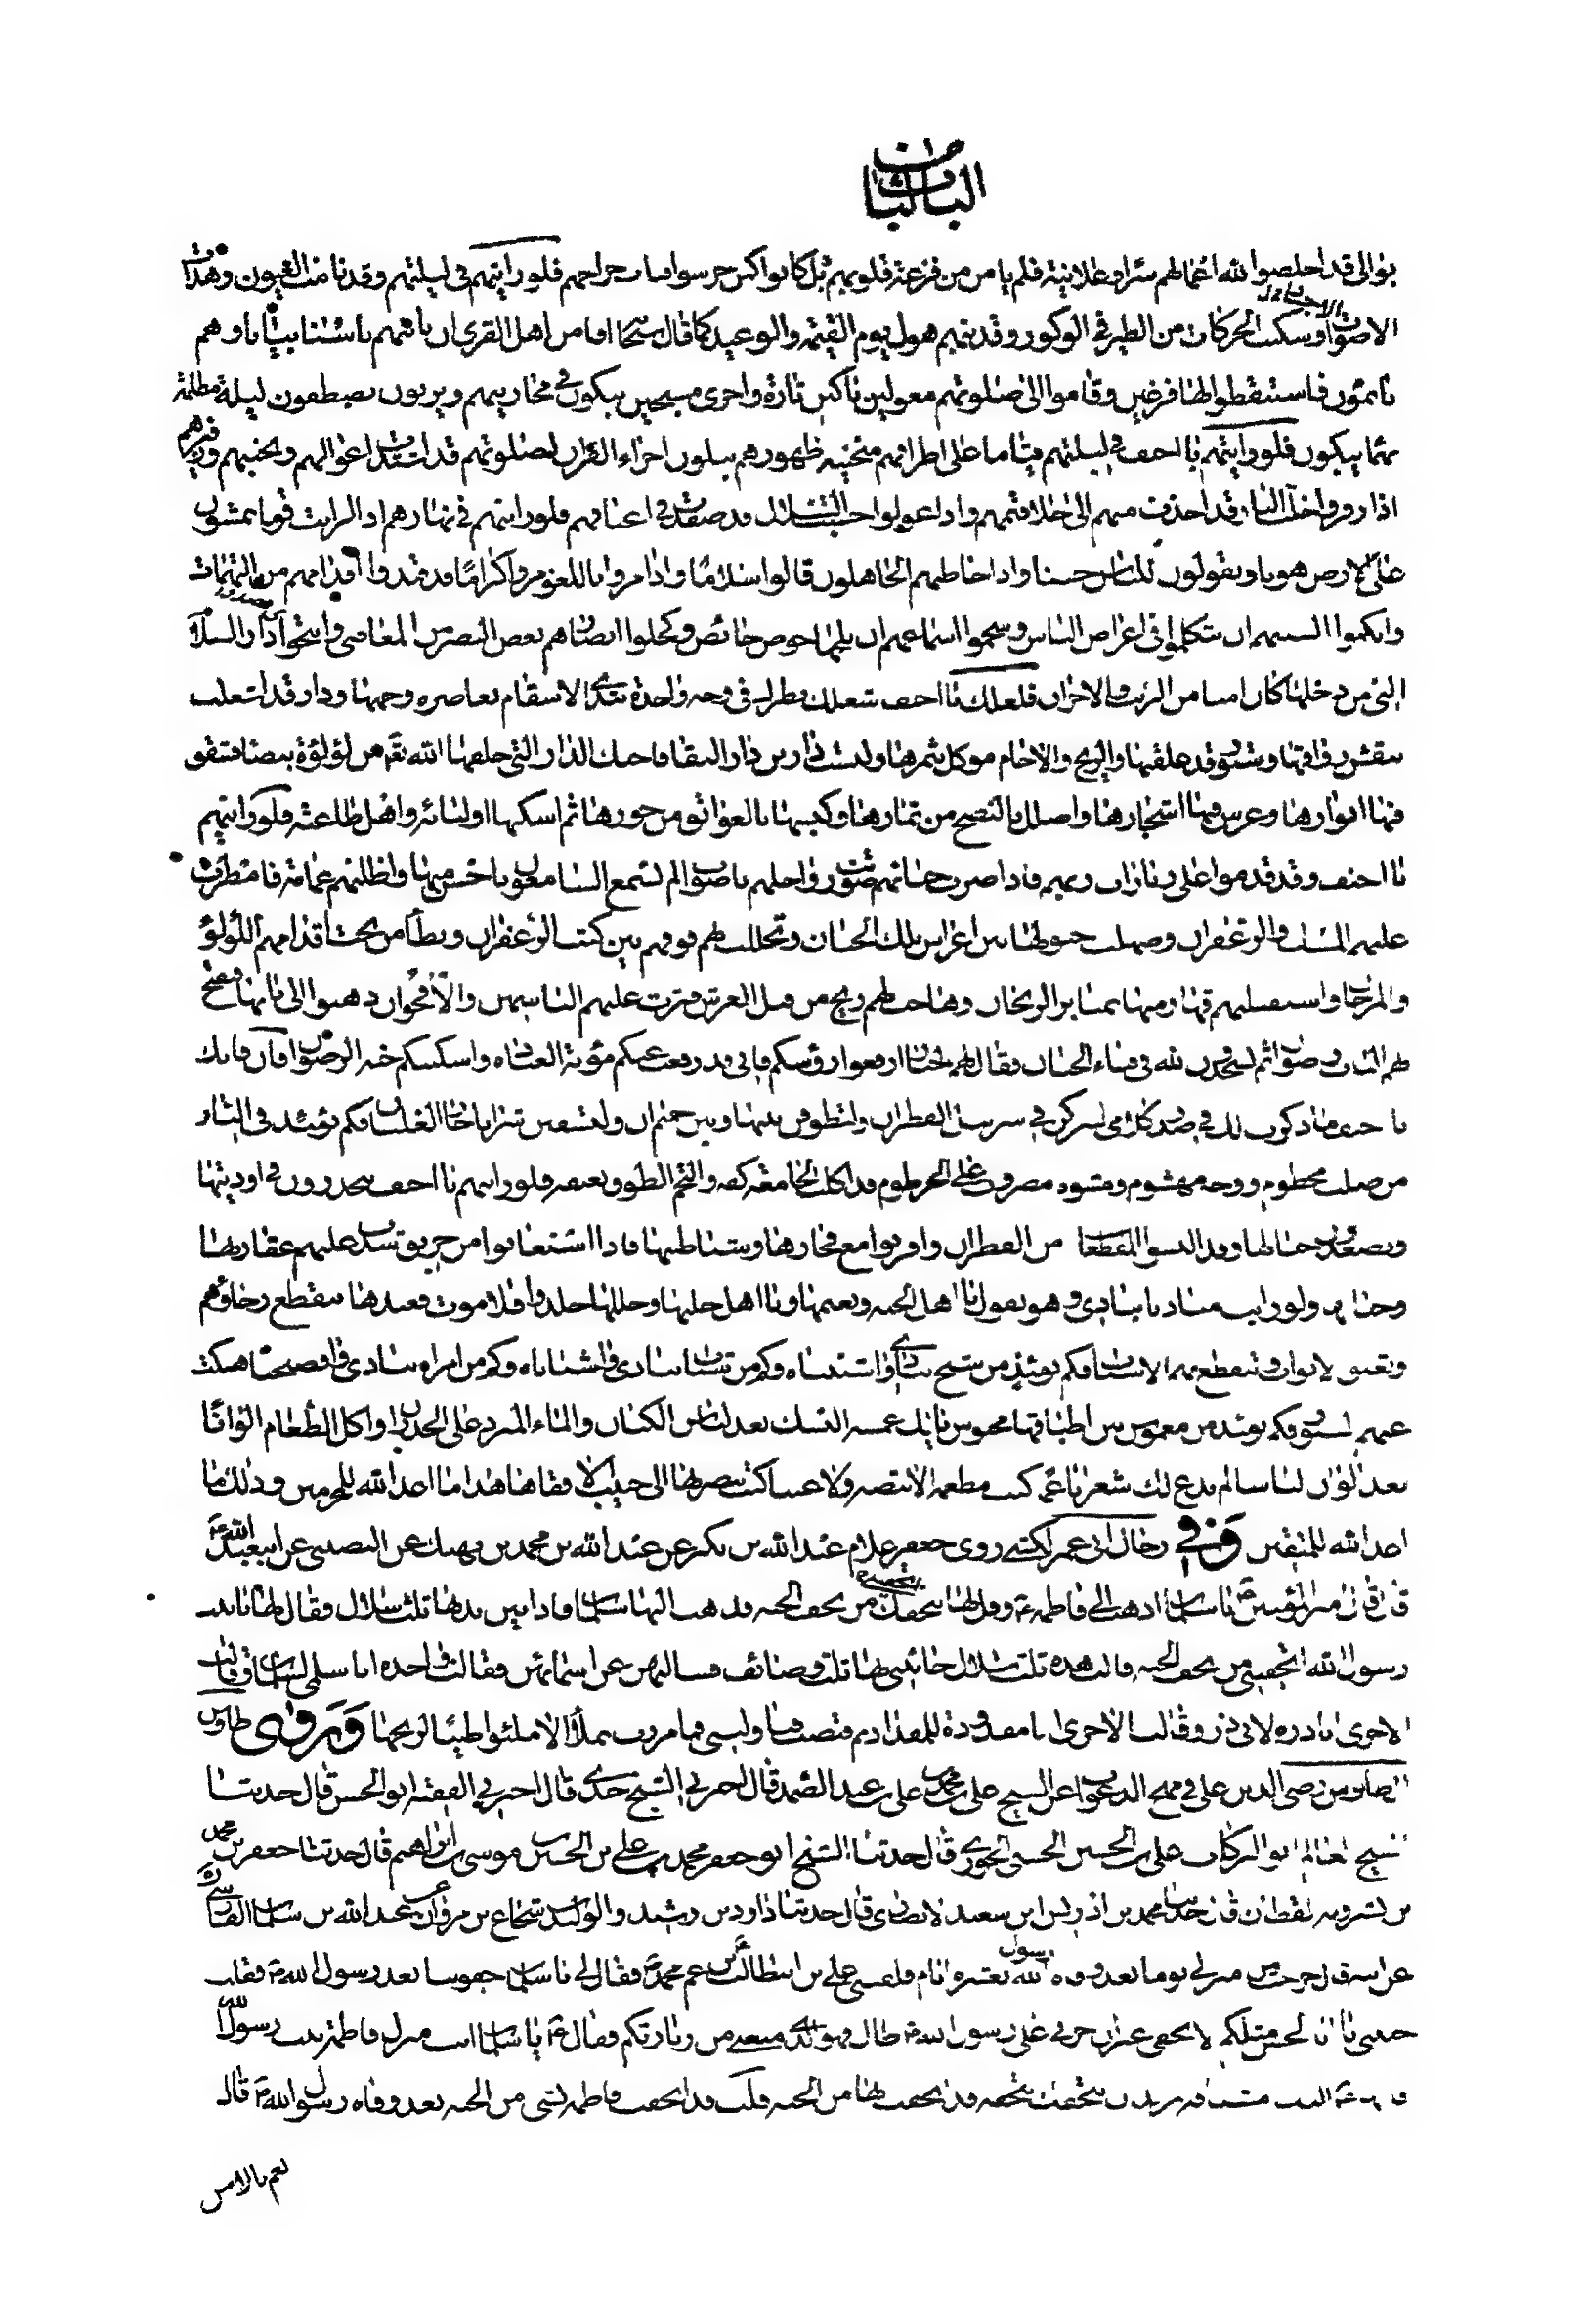 الباب الثامن
بوالى قد اخلصوا لله اعمالهم سرا وعلانية فلم يامن من فزعه قلوبهم بل كانوا كمن حرسوا قباب خراجهم فلو رايتهم في ليلتهم وقد نامت العيون وهدات
الاصوات وسكنت الحركات من الطير في الوكور وقد نبههم هول يوم القيمة والوعيد كما قال سبحانه افامن اهل القرى ان ياتيهم باسنا بياتا وهم
نائمون فاستيقظوا لها فزعين وقاموا الى صلوتهم معولين باكين تارة واخرى مسبحين يبكون في محاريبهم ويرنون يصطفون ليلة مظلمة
بهماء يبكون فلو رايتهم يا احنف في ليلتهم قياما على اطرافهم منحنية ظهورهم يتلون اجزاء القران لصلوتهم قد اشتدت اعوالهم ونحيبهم وزفيرهم
اذا زفروا خلت النار قد اخذت منهم الى حلاقيمهم واذا اعولوا حسبت السلاسل قد صفدت في اعناقهم فلو رايتهم في نهارهم اذا لرايت قوما يمشون
على الارض هونا ويقولون للناس حسنا واذا خاطبهم الجاهلون قالوا سلاما واذا مروا باللغو مروا كراما قد قيدوا اقدامهم من التهمات
وابكموا السنتهم ان يتكلموا في اعراض الناس وسجموا اسماعهم ان يلجها خوض خائض وكحلوا ابصارهم بغض البصر عن المعاصي وانتحوا دار السلام
التي من دخلها كان امنا من الريب والاحزان فلعلك يا احنف شغلك نظرك في وجه واحدة تبدي الاسقام بغاضرة وجهها ودار قد اشتغلت
بنقش رواقها وستور قد علقتها والريح والاجام موكل بثمرها وليست دارك من دار البقا فاحتك الدار التي خلقها الله تعالى من لؤلؤة بيضا فشقق
فيها انهارها وغرس فيها اشجارها واظلل بالنضج من ثمارها وكبسها بالعواتق من حورها ثم اسكنها اولياءه واهل طاعته فلو رايتهم
يا احنف وقد قدموا على زيادات ربهم فاذا ضربت جنائبهم صوتت رواحلهم باصوات لم يسمع السامعون باحسن منها واظلتهم غمامة فامطرت
عليهم المسك والزعفران وصهلت خيولها بين اغراس تلك الجنان وتخللت بهم نوقهم بين كثب الزعفران ويطأ من تحت اقدامهم اللؤلؤ
والمرجان واستقبلتهم قهارمتها بمنابر الريحان وهاجت لهم ريح من قبل العرش فنثرت عليهم الياسمين والاقحوان ذهبوا الى بابها فيفتح
لهم الباب رضوان ثم يسجدون لله في فناء الجنان فقال لهم الجبار ارفعوا رؤسكم فاني قد رفعت عنكم مؤنة العبادة واسكنتكم جنة الرضوان فان فاتك
يا احنف ما ذكرت لك في صدر كلامي لتتركن في سرابيل القطران ولتطوفن بينها وبين حميم ان ولتسقين شرابا حار الغليان فكم يومئذ في النار
من صلب محطوم ووجه مهشوم ومشوه مضروب على الخرطوم قد اكلت الجامعة كفه والتحم الطوق بعنقه فلو رايتهم يا احنف ينحدرون في اوديتها
ويصعدون جبالها وقد البسوا المقطعات من القطران واقرنوا مع فجارها وشياطينها فاذا استغاثوا من حريق شدت عليهم عقاربها
وحياتها ولو رايت مناديا ينادي وهو يقول يا اهل الجنة ونعيمها ويا اهل حليها وحللها خلدوا فلا موت فعندها ينقطع رجاؤهم
وتغلق الابواب وتنقطع بهم الاسباب فكم يومئذ من شيخ ينادي واشيبتاه وكم من شاب ينادي واشباباه وكم من امراة تنادي وافضيحتاه هتكت
عنهم الستور فكم يومئذ من مغموس بين اطباقها محبوس يا لك غمسة البستك بعد لباس الكتان والماء المبرد على الجدران واكل الطعام الوانا
بعد الوان لباسا لم يدع لك شعرا ناعما كنت مطعمه الا بيضه ولا عينا كنت تبصر بها الى حبيب الا فقاها هذا ما اعد الله للمجرمين وذلك ما
اعد الله للمتقين وفي رجال ابي عمرو الكشي روى جعفر غلام عبد الله بن بكير عن عبد الله بن محمد بن نهيك عن النصيبي عن ابي عبد الله ع
قال قال امير المؤمنين ع يا سلمان اذهب الى فاطمة ع وقل لها تتحفك من تحف الجنة فذهب اليها سلمان فاذا بين يديها ثلث سلال فقال لها يا بنت
رسول الله اتحفيني من تحف الجنة قالت هذه ثلث سلال جائتني بها ثلث وصائف فسالتهن عن اسمائهن فقالت واحدة انا سلمى لسلمان وقالت
الاخرى انا ذرة لابي ذر وقالت الاخرى انا مقدودة للمقداد ثم قبضت فناولتني فما مررت بملأ الا ملئوا طيبا لريحها وروى طاوس
الطاوس رضي الدين علي في مهج الدعوات عن الشيخ علي بن محمد بن علي بن عبد الصمد قال اخبرني الشيخ جدي قال اخبرني الفقيه ابو الحسن قال حدثنا
الشيخ العالم ابو البركات علي بن الحسين الحسني الجوري قال حدثنا الشيخ ابو جعفر محمد بن علي بن الحسين بن موسى بن بابويه قال حدثنا جعفر بن محمد
بن بشرويه القطان قال حدثنا محمد بن ادريس ابن سعيد الانصاري قال حدثنا داود بن رشيد والوليد شجاع بن مروان عن عبد الله بن سلمان الفارسي ره
عن ابيه قال خرجت من منزلي يوما بعد وفاة رسول الله بعشرة ايام فلقيني علي بن ابيطالب ع ابن عم محمد ص فقال لي يا سلمان جفوتنا بعد رسول الله ص فقلت
حبيبي يا ابا الحسن مثلكم لا يجفى غير ان حزني على رسول الله ص طال فهو الذي منعني من زيارتكم فقال ع يا سلمان ائت منزل فاطمة بنت رسول الله
ص فانها اليك مشتاقة تريد ان تتحفك بتحفة قد اتحفت بها من الجنة قلت قد اتحفت فاطمة بشئ من الجنة بعد وفاة رسول الله ص قال
نعم بالامس